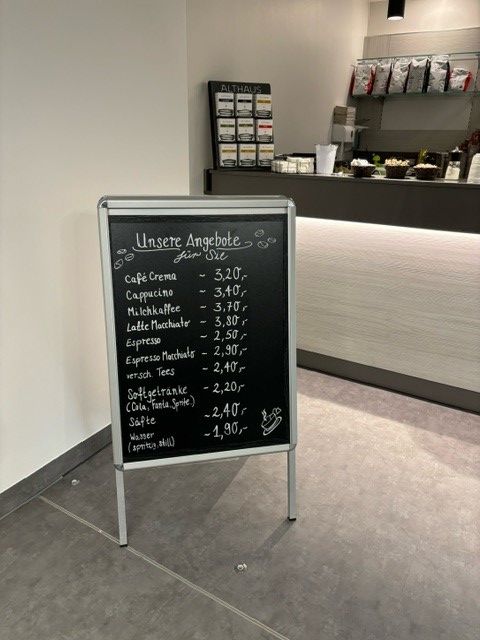 ALTHAUS
Unsere Angebote
für Sie
Café Crema ~ 3,20,-
Cappucino ~ 3,40,-
Milchkaffee ~ 3,70,-
Latte Macchiato ~ 3,80,-
Espresso ~ 2,50,-
Espresso Macchiato ~ 2,90,-
versch. Tees ~ 2,40,-
Softgetränke ~ 2,20,-
(Cola, Fanta, Sprite.)
Säfte ~ 2,40,-
Wasser ~ 1,90,-
(spritzig, still)